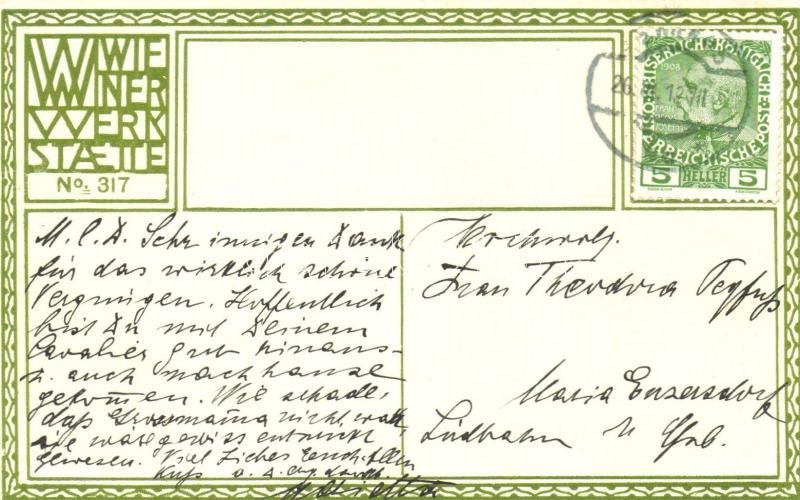 WIE
WW NER
WERK
STÆTTE
No. 317
KAISERLICH KÖNIGLICHE
ÖSTERREICHISCHE POST
1908
5 HELLER 5
26. 12 VII
M. l. D. Sehr innigen Dank
für das wirklich schöne
Vergnügen. Hoffentlich
bist Du mit Deinem
Cavalier gut hinaus-
u. auch nachhause
gekommen. Wie schade,
daß Grossmama nicht
sie wäre gewiss entzückt
gewesen. Viel Liebes Euch allen
Kuß
Hochwolg.
Frau Theodora
Maria Enzersdorf
Südbahn